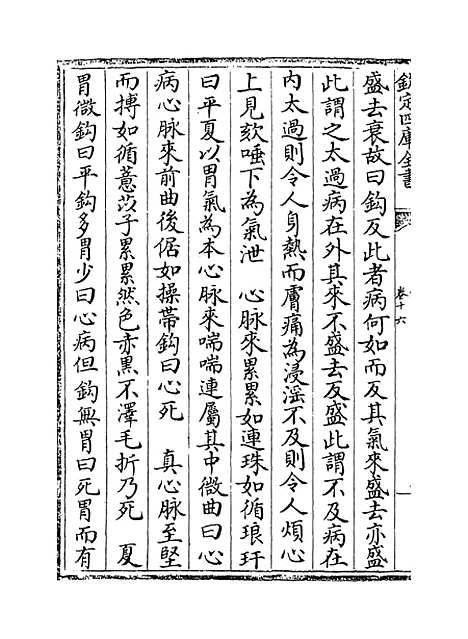 欽定四庫全書
卷十六
盛去衰故曰鈎反此者病何如而反其氣來盛去亦盛
此謂之太過病在外其來不盛去反盛此謂不及病在
内太過則令人身熱而膚痛為浸滛不及則令人煩心
上見欬唾下為氣泄　心脉來累累如連珠如循琅玕
曰平夏以胃氣為本心脉來喘喘連屬其中微曲曰心
病心脉來前曲後倨如操帯鈎曰心死　真心脉至堅
而搏如循薏苡子累累然色赤黒不澤毛折乃死　夏
胃微鈎曰平鈎多胃少曰心病但鈎無胃曰死胃而有